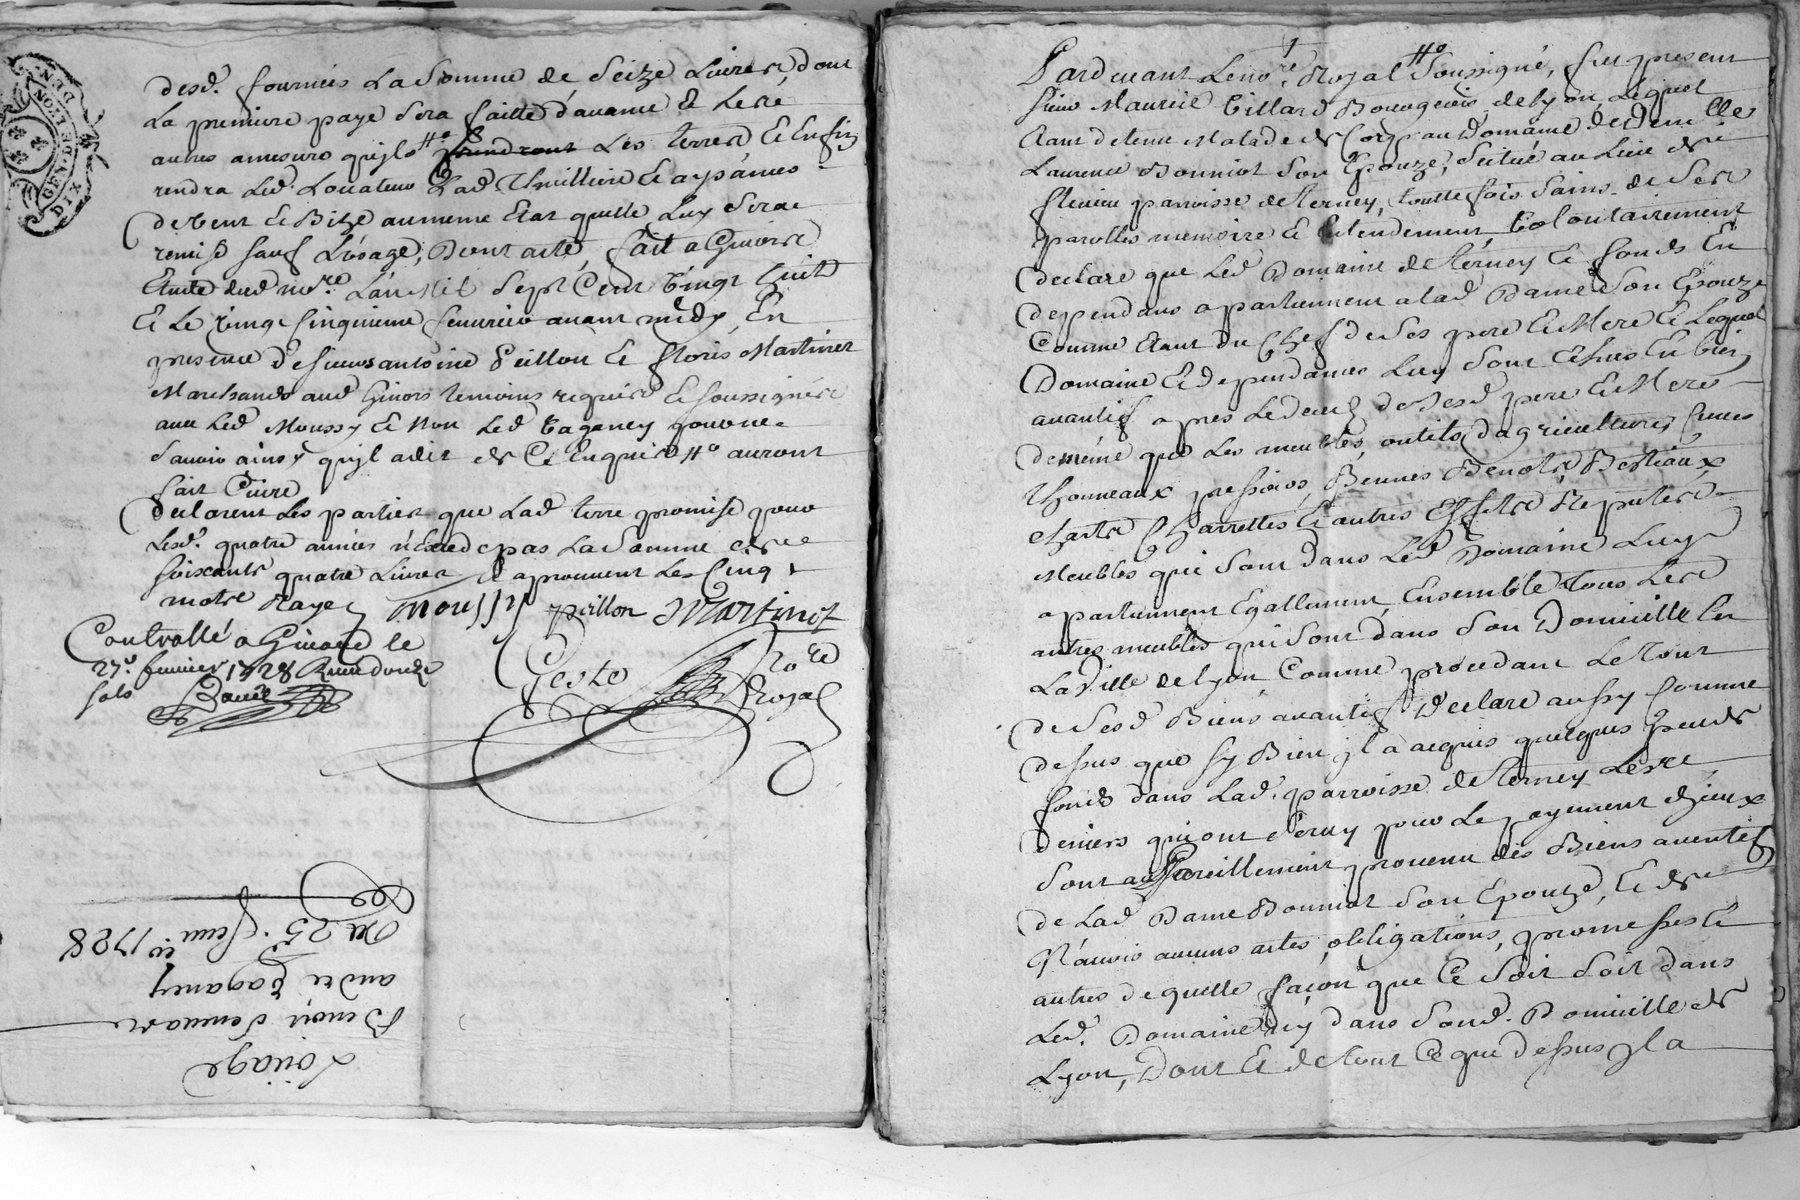 desd. fournies La Somme de Seize Livres, dont
La premiere paye Sera faitte d'avance & Les
autres amesure quils prendront Les terres Et Enfin
rendra Led. Locateur Lad.
de vent Et Bize au meme Etat quelle Luy Sera
remise sauf L'usage, Dont acte, fait a Givors
Etude dud no.re L'an Mil Sept Cent vingt huit
Et Le vingt Cinquieme fevrier avant midy, En
presence de sieurs antoine Peillon Et floris Martinet
Marchands aud Givors temoins requis Et soussignés
avec Led Moussy Et Non Led Taganey pour ne
Scavoir ainsy quil a dit de Ce Enquis H.o auront
fait Cuire
Declarent Les parties que Lad terre promise pour
Lesd. quatre années n'Excede pas La Somme de
soixante quatre Livres Et aprouvent Les Cinq
motre Rayez Moussy peillon Martinet
Controllé a Givord le
27.e fevrier 1728 Receu douze
sols
Geste No.re
Royal
GEN. DE LYON
DIX
DEN.
Louage
Benoit
andre Taganey
Du 25.e fevr.er 1728
Pardevant Le no.re Royal H.o Soussigné, fut present
sieur Maurice Billard Bourgeois de Lyon, Lequel
Etant detenu Malade de Corps au Domaine de demoi.lle
Laurence Bonniot Son Epouze, Scitué au Lieu de
flevieu parroisse de Ternay, touttefois Sains de Ses
parolles memoire Et Entendement, Volontairement
Declare que Led Domaine de Ternay Et fonds En
dependans apartiennent a lad Dame Son Epouze
Comme Etant du Chef de Ses pere Et Mere Et Lequel
Domaine Et dependances Luy Sont Echus En bien
avantif apres Le decez de Sesd pere Et Mere
de même que Les meubles, outils d'agriculture, Cuves
thonneaux pressoirs, Bennes Benots, Bestiaux
chars Charrettes Et autres Effets Reputés
Meubles qui Sont dans Led Domaine Luy
apartiennent Egallement, Ensemble tous Les
autres meubles qui Sont dans Son Domicille En
La Ville de Lyon, Comme procedant Le tout
de Sesd Biens avantif, Declare aussy Comme
dessus que Sy Bien jl a acquis quelques
fonds dans Lad. parroisse de Ternay Les
deniers qui ont Servy pour Le payement d'jceux
Sont Pareillement provenu des Biens aventif
de Lad Dame Bonniot Son Epouze, Et de
N'avoir aucuns actes, obligations, promesses Et
autres de quelle façon que Ce Soit Soit dans
Led. Domaine ny dans Sond. Domicille de
Lyon, Dont Et de tout Ce que dessus jl a